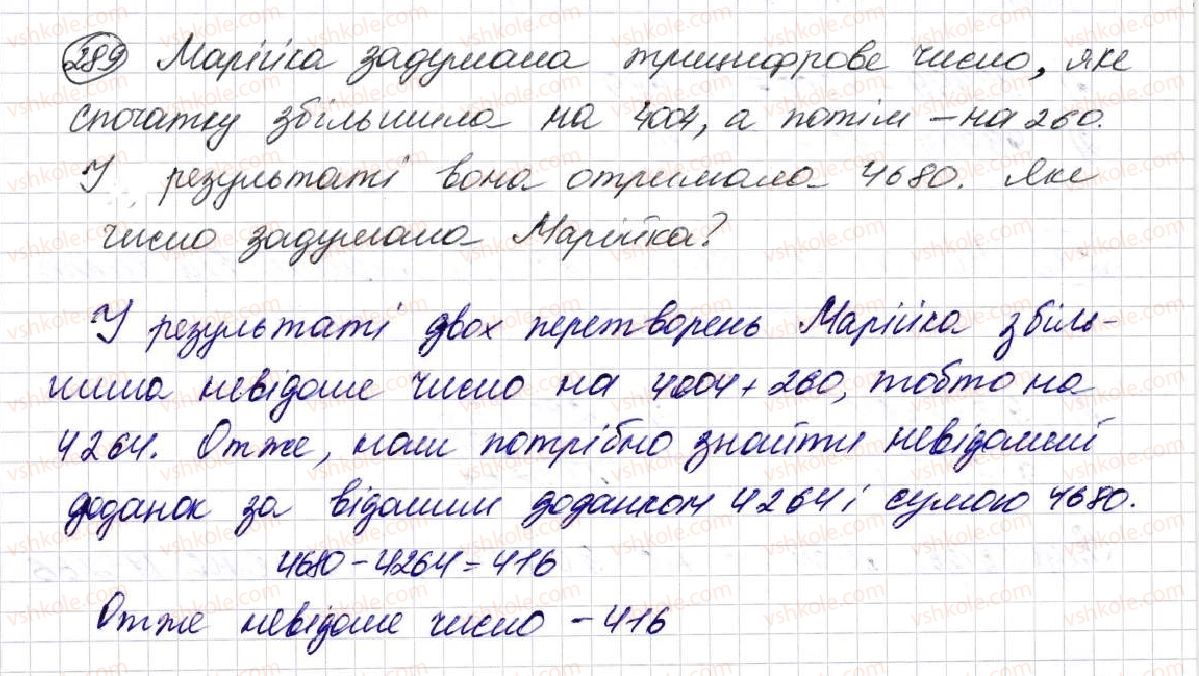 289 Марійка задумала трицифрове число, яке
спочатку збільшила на 4004, а потім – на 260.
У результаті вона отримала 4680. Яке
число задумала Марійка?
У результаті двох перетворень Марійка збіль-
шила невідоме число на 4004 + 260, тобто на
4264. Отже, нам потрібно знайти невідомий
доданок за відомим доданком 4264 і сумою 4680.
4680 – 4264 = 416
Отже невідоме число – 416